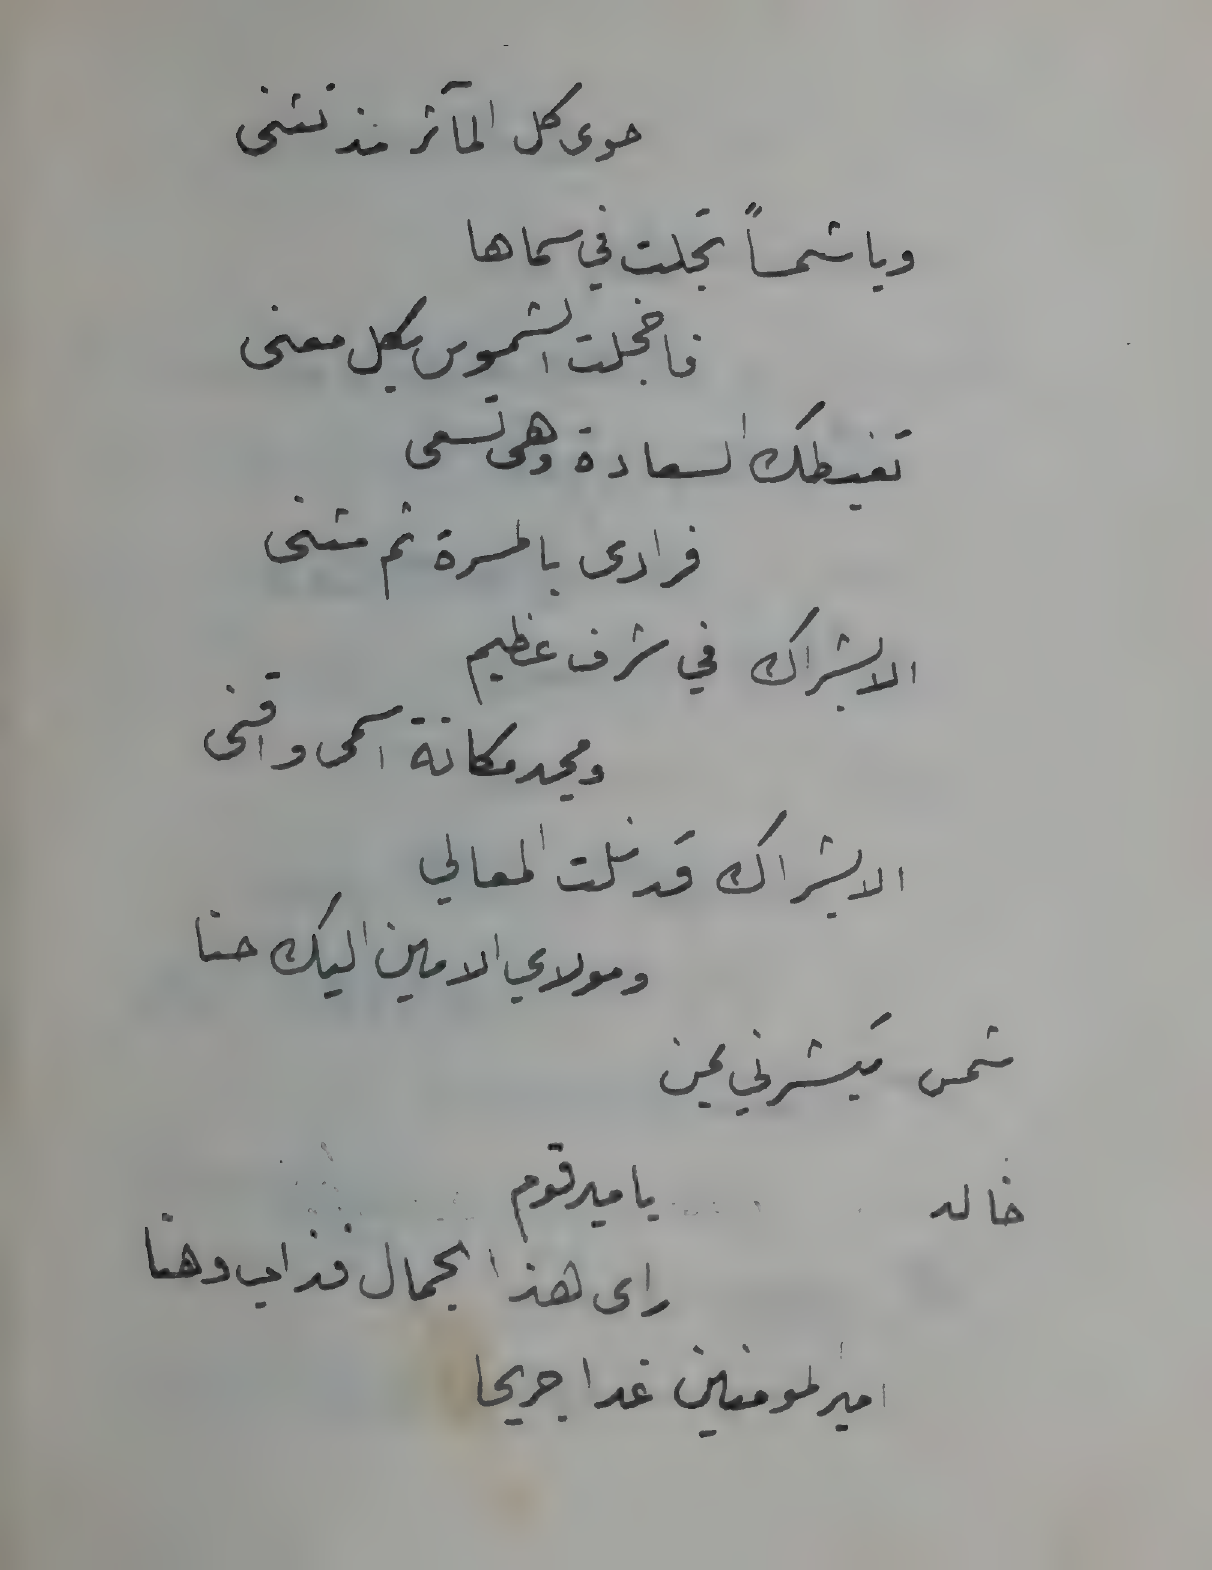 حوى كل المآثر منذ تثنى
ويا شمساً تجلت في سماها
فاخجلت الشموس بكل معنى
تغبطك السعادة وهي تسعى
فرادى بالمسرة ثم مثنى
الا بشراك في شرف عظيم
ومجد مكانة اسمى واقنى
الا بشراك قد نلت المعالي
ومولاي الامين اليك حنا
شمس يبشرني بمن
خالد يا مير قوم
راى هذا الجمال فذاب وهنا
امير المومنين غدا جريحا